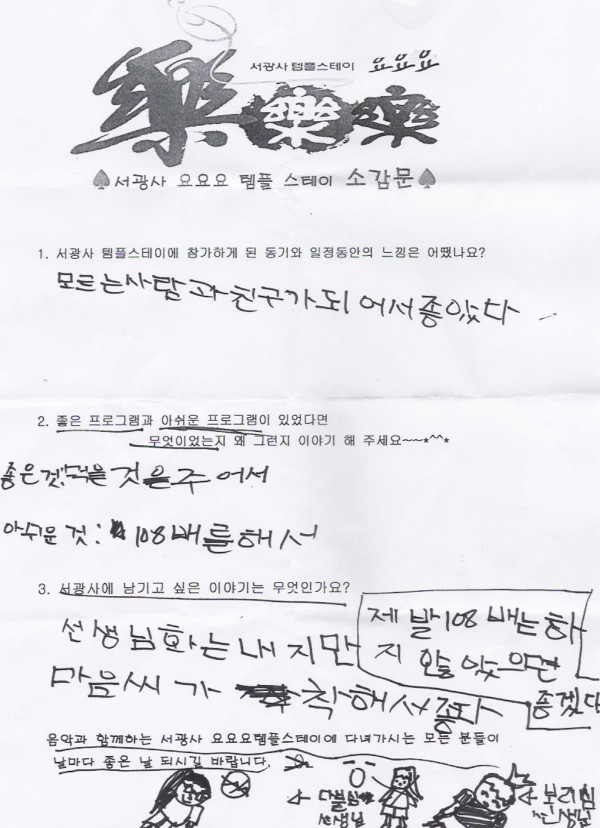 서광사 템플스테이 요요요
樂 樂 樂
♠서광사 요요요 템플 스테이 소감문♠
1. 서광사 템플스테이에 참가하게 된 동기와 일정동안의 느낌은 어땠나요?
모르는사람과친구가되어서좋았다
2. 좋은 프로그램과 아쉬운 프로그램이 있었다면
무엇이었는지 왜 그런지 이야기 해 주세요~~*^^*
좋은것:먹을것을주어서
아쉬운 것: 108배를해서
3. 서광사에 남기고 싶은 이야기는 무엇인가요?
선생님화는내지만
마음씨가 착해서좋다
제발108배는하
지 않았으면
좋겠다
음악과 함께하는 서광사 요요요템플스테이에 다녀가시는 모든 분들이
날마다 좋은 날 되시길 바랍니다.
선생님
보리심
선생님